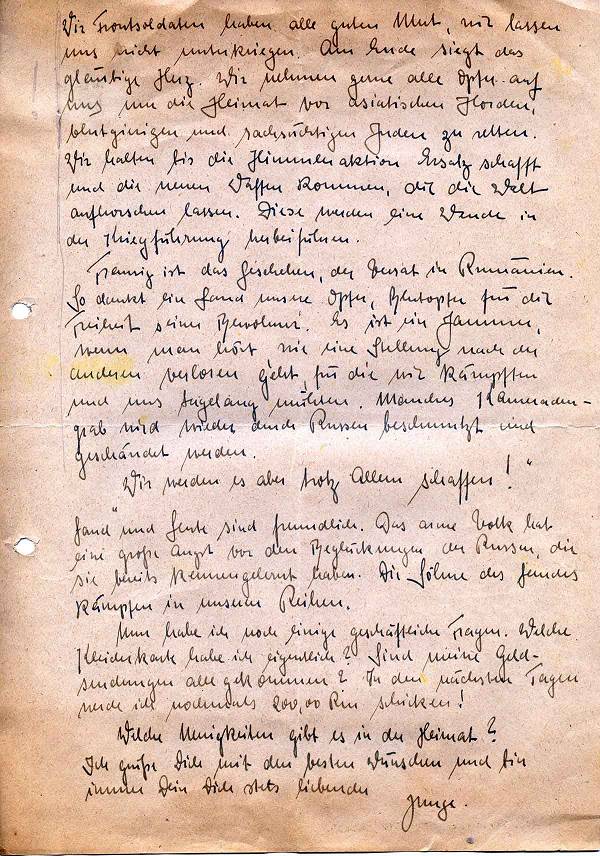 Wir Frontsoldaten haben alle guten Mut, wir lassen
uns nicht unterkriegen. Am Ende siegt das
gläubige Herz. Wir nehmen gerne alle Opfer auf
uns um die Heimat vor asiatischen Horden,
blutgierigen und rachsüchtigen Juden zu retten.
Wir halten bis die Himmleraktion Ersatz schafft
und die neuen Waffen kommen, die die Welt
aufhorchen lassen. Diese werden eine Wende in
der Kriegführung herbeiführen.
Traurig ist das Geschehen, der Verrat in Rumänien.
So dankt ein Land unsere Opfer, Blutopfer für die
Freiheit seiner Bewohner. Es ist ein Jammer,
wenn man hört, wie eine Stellung nach der
anderen verloren geht, für die wir kämpften
und uns tagelang mühten. Manches Kameraden-
grab wird wieder durch Russen beschmutzt und
geschändet werden.
Wir werden es aber trotz Allem schaffen!"
Land" und Leute sind freundlich. Das arme Volk hat
eine große Angst vor den Beglückungen der Russen, die
sie bereits kennengelernt haben. Die Söhne des Landes
kämpfen in unseren Reihen.
Nun habe ich noch einige geschäftliche Fragen. Welche
Kleiderkarte habe ich eigentlich? Sind meine Geld-
sendungen alle gekommen? In den nächsten Tagen
werde ich nochmals 200,00 Rm schicken!
Welche Neuigkeiten gibt es in der Heimat?
Ich grüße Dich mit den besten Wünschen und bin
immer Dein Dich stets liebender
Junge.